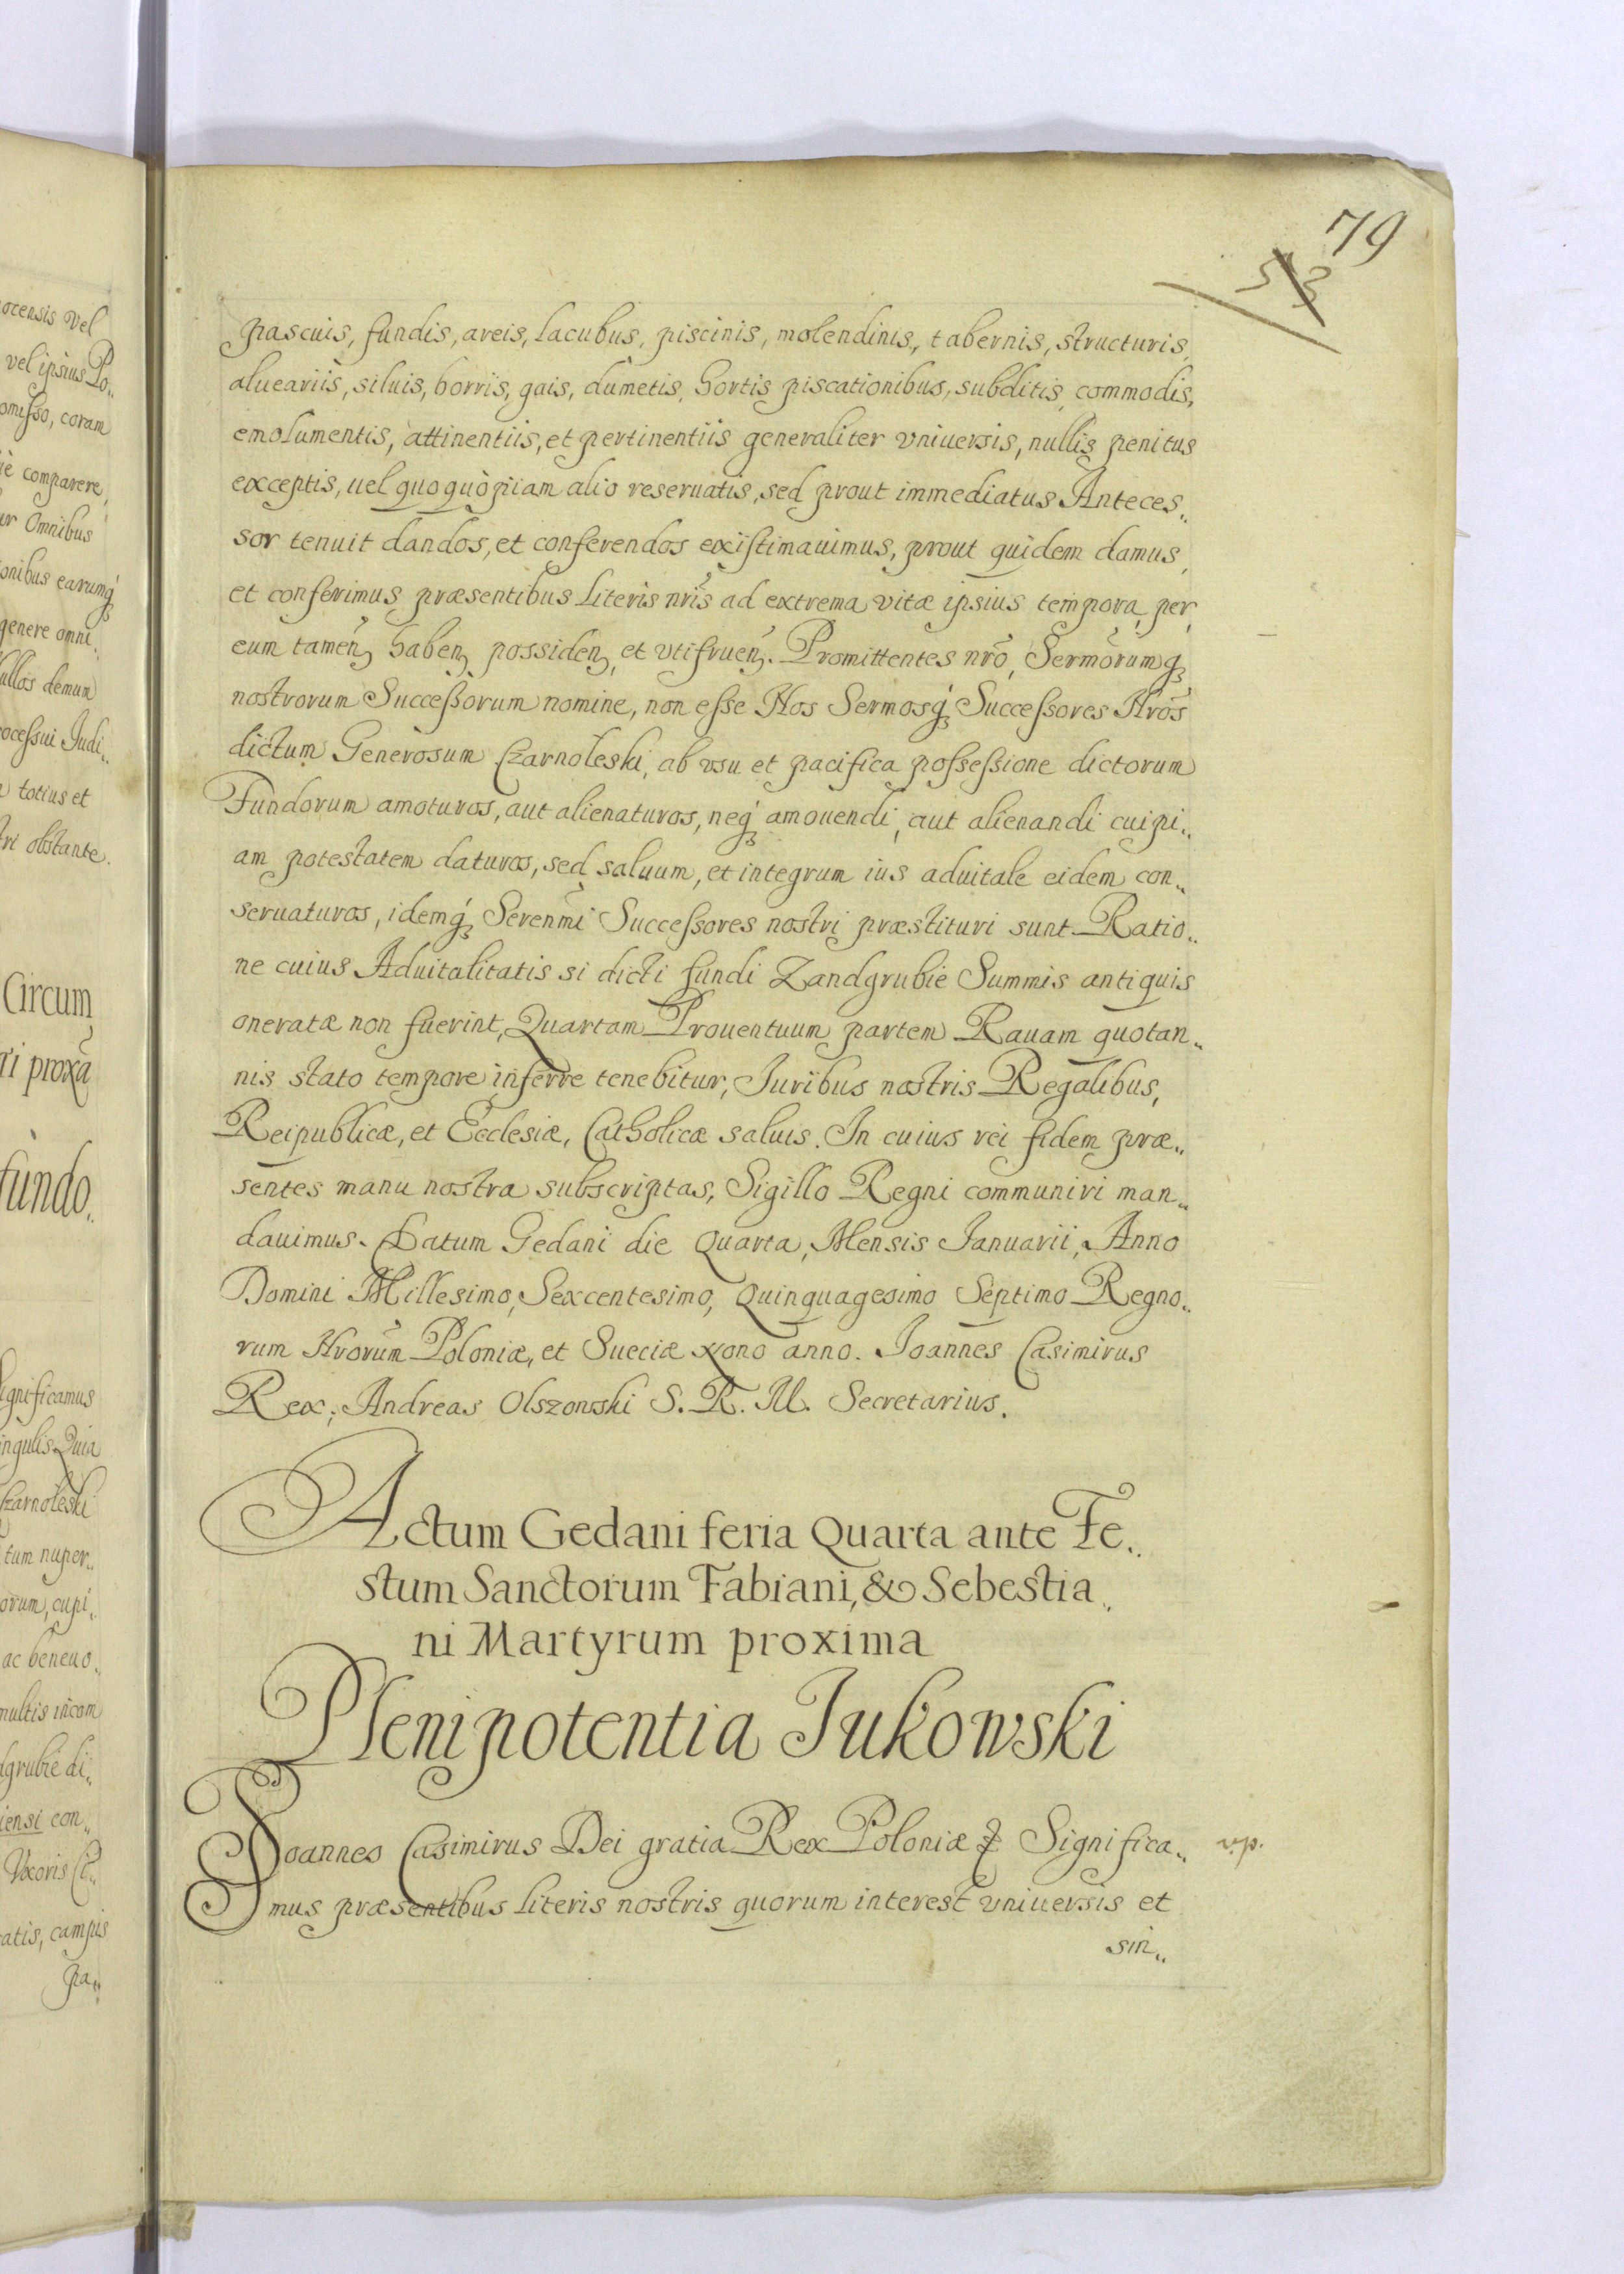 79
53
pascuis, fundis, areis, lacubus, piscinis, molendinis, tabernis, structuris,
alueariis, siluis, borris, gais, dumetis, hortis piscationibus, subditis, commodis,
emolumentis, attinentiis, et pertinentiis generaliter vniuersis, nullis penitus
exceptis, uel quoquòpiam alio reseruatis, sed prout immediatus Anteces„
sor tenuit dandos, et conferendos existimauimus, prout quidem damus,
et conferimus præsentibus Literis nris̃ ad extrema vitæ ipsius tempora, per
eum tamen habenꝫ possidenꝫ, et vtifruenꝫ. Promittentes nrõ, Sermõrumqꝫ
nostrorum Successorum nomine, non esse Nos Sermosqꝫ Successores Nrõs
dictum Generosum Czarnoleski, ab vsu et pacifica possessione dictorum
Fundorum amoturos, aut alienaturos, neqꝫ amouendi, aut alienandi cuipi„
am potestatem daturos, sed saluum, et integrum ius aduitale eidem con„
seruaturos, idemqꝫ Serenmĩ Successores nostri præstituri sunt. Ratio„
ne cuius Aduitalitatis si dicti fundi Zandgrubie Summis antiquis
oneratæ non fuerint, Quartam Prouentuum partem Rauam quotan„
nis stato tempore inferre tenebitur, Iuribus nostris Regalibus,
Reipublicæ, et Ecclesiæ, Catholicæ saluis. In cuius rei fidem præ„
sentes manu nostra subscriptas, Sigillo Regni communiri man„
dauimus. Datum Gedani die Quarta, Mensis Ianuarii, Anno
Domini Millesimo, Sexcentesimo, Quinquagesimo Septimo Regno„
rum Nrorum̃ Poloniæ, et Sueciæ Nono anno. Ioannes Casimirus
Rex; Andreas Olszowski S. R. M. Secretarius.
Actum Gedani feria Quarta ante Fe„
stum Sanctorum Fabiani, & Sebestia„
ni Martyrum proxima
Plenipotentia Iukowski
Ioannes Casimirus Dei gratia Rex Poloniæ & Significa„
mus præsentibus literis nostris quorum interest vniuersis et
sin„